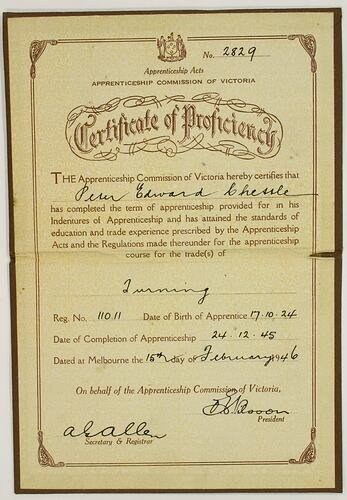 No. 2829
Apprenticeship Acts
APPRENTICESHIP COMMISSION OF VICTORIA
Certificate of Proficiency
THE Apprenticeship Commission of Victoria hereby certifies that
Peter Edward Chessle
has completed the term of apprenticeship provided for in his
Indentures of Apprenticeship and has attained the standards of
education and trade experience prescribed by the Apprenticeship
Acts and the Regulations made thereunder for the apprenticeship
course for the trade(s) of
Turning
Reg. No. 11011 Date of Birth of Apprentice 17.10.24
Date of Completion of Apprenticeship 24.12.45
Dated at Melbourne the 15th day of February 1946
On behalf of the Apprenticeship Commission of Victoria,
President
Secretary & Registrar